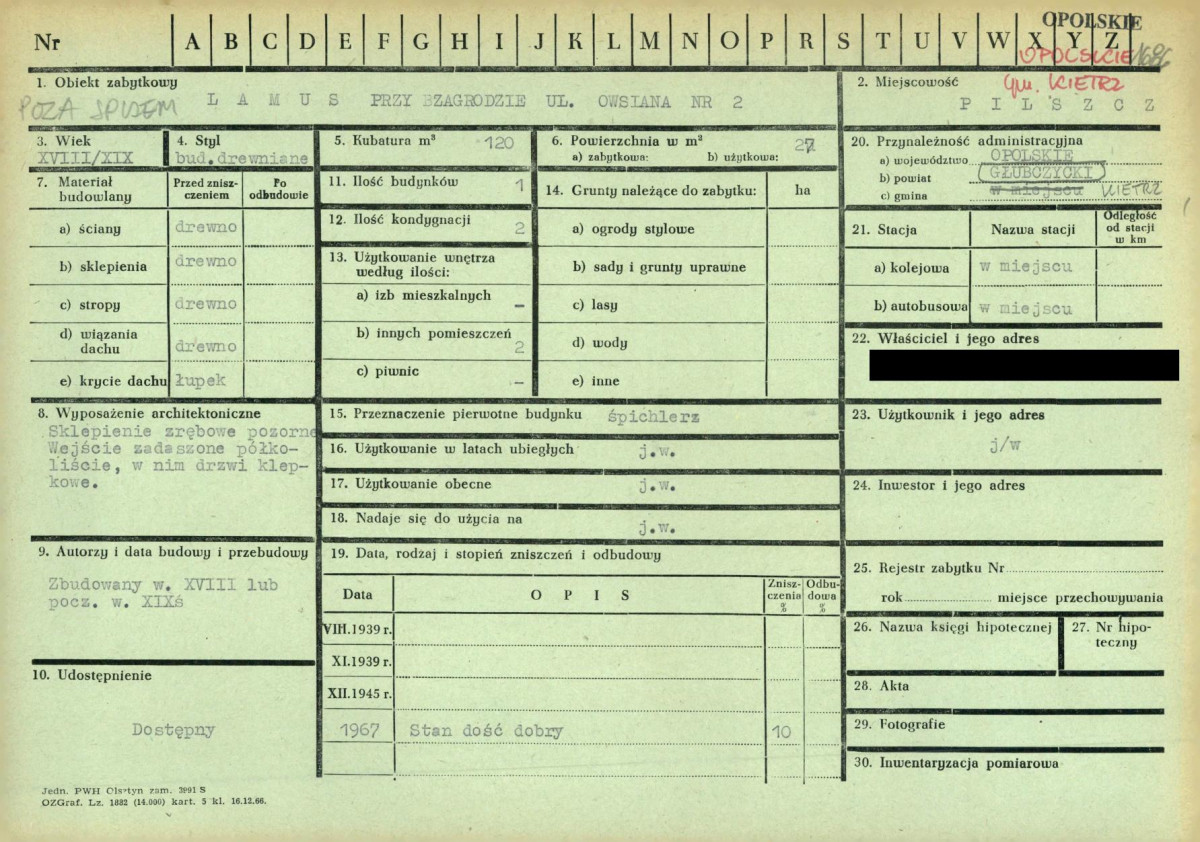 OPOLSKIE
Nr A B C D E F G H I J K L M N O P R S T U V W X Y Z
OPOLSKIE 1686
1. Obiekt zabytkowy
POZA SPISEM
LAMUS PRZY ZAGRODZIE UL. OWSIANA NR 2
2. Miejscowość
gm. KIETRZ
PILSZCZ
3. Wiek
XVIII/XIX
4. Styl
bud.drewniane
5. Kubatura m³ 120
6. Powierzchnia w m²
a) zabytkowa: b) użytkowa: 27
20. Przynależność administracyjna
a) województwo OPOLSKIE
b) powiat GŁUBCZYCKI
c) gmina w miejscu KIETRZ
7. Materiał budowlany
Przed zniszczeniem
Po odbudowie
a) ściany drewno
b) sklepienia drewno
c) stropy drewno
d) wiązania dachu drewno
e) krycie dachu łupek
11. Ilość budynków 1
12. Ilość kondygnacji 2
13. Użytkowanie wnętrza według ilości:
a) izb mieszkalnych –
b) innych pomieszczeń 2
c) piwnic –
14. Grunty należące do zabytku: ha
a) ogrody stylowe
b) sady i grunty uprawne
c) lasy
d) wody
e) inne
21. Stacja
Nazwa stacji
Odległość od stacji w km
a) kolejowa w miejscu
b) autobusowa w miejscu
22. Właściciel i jego adres
8. Wyposażenie architektoniczne
Sklepienie zrębowe pozorne
Wejście zadaszone półko-
liście, w nim drzwi klep-
kowe.
15. Przeznaczenie pierwotne budynku śpichlerz
16. Użytkowanie w latach ubiegłych j.w.
17. Użytkowanie obecne j.w.
18. Nadaje się do użycia na j.w.
23. Użytkownik i jego adres
j/w
24. Inwestor i jego adres
9. Autorzy i data budowy i przebudowy
Zbudowany w. XVIII lub
pocz. w. XIXś
19. Data, rodzaj i stopień zniszczeń i odbudowy
Data
OPIS
Znisz-
czenia
%
Odbu-
dowa
%
VIII.1939 r.
XI.1939 r.
XII.1945 r.
1967 Stan dość dobry 10
25. Rejestr zabytku Nr
rok miejsce przechowywania
26. Nazwa księgi hipotecznej
27. Nr hipo-
teczny
28. Akta
29. Fotografie
30. Inwentaryzacja pomiarowa
10. Udostępnienie
Dostępny
Jedn. PWH Olsztyn zam. 3991 S
OZGraf. Lz. 1882 (14.000) kart. 5 kl. 16.12.66.